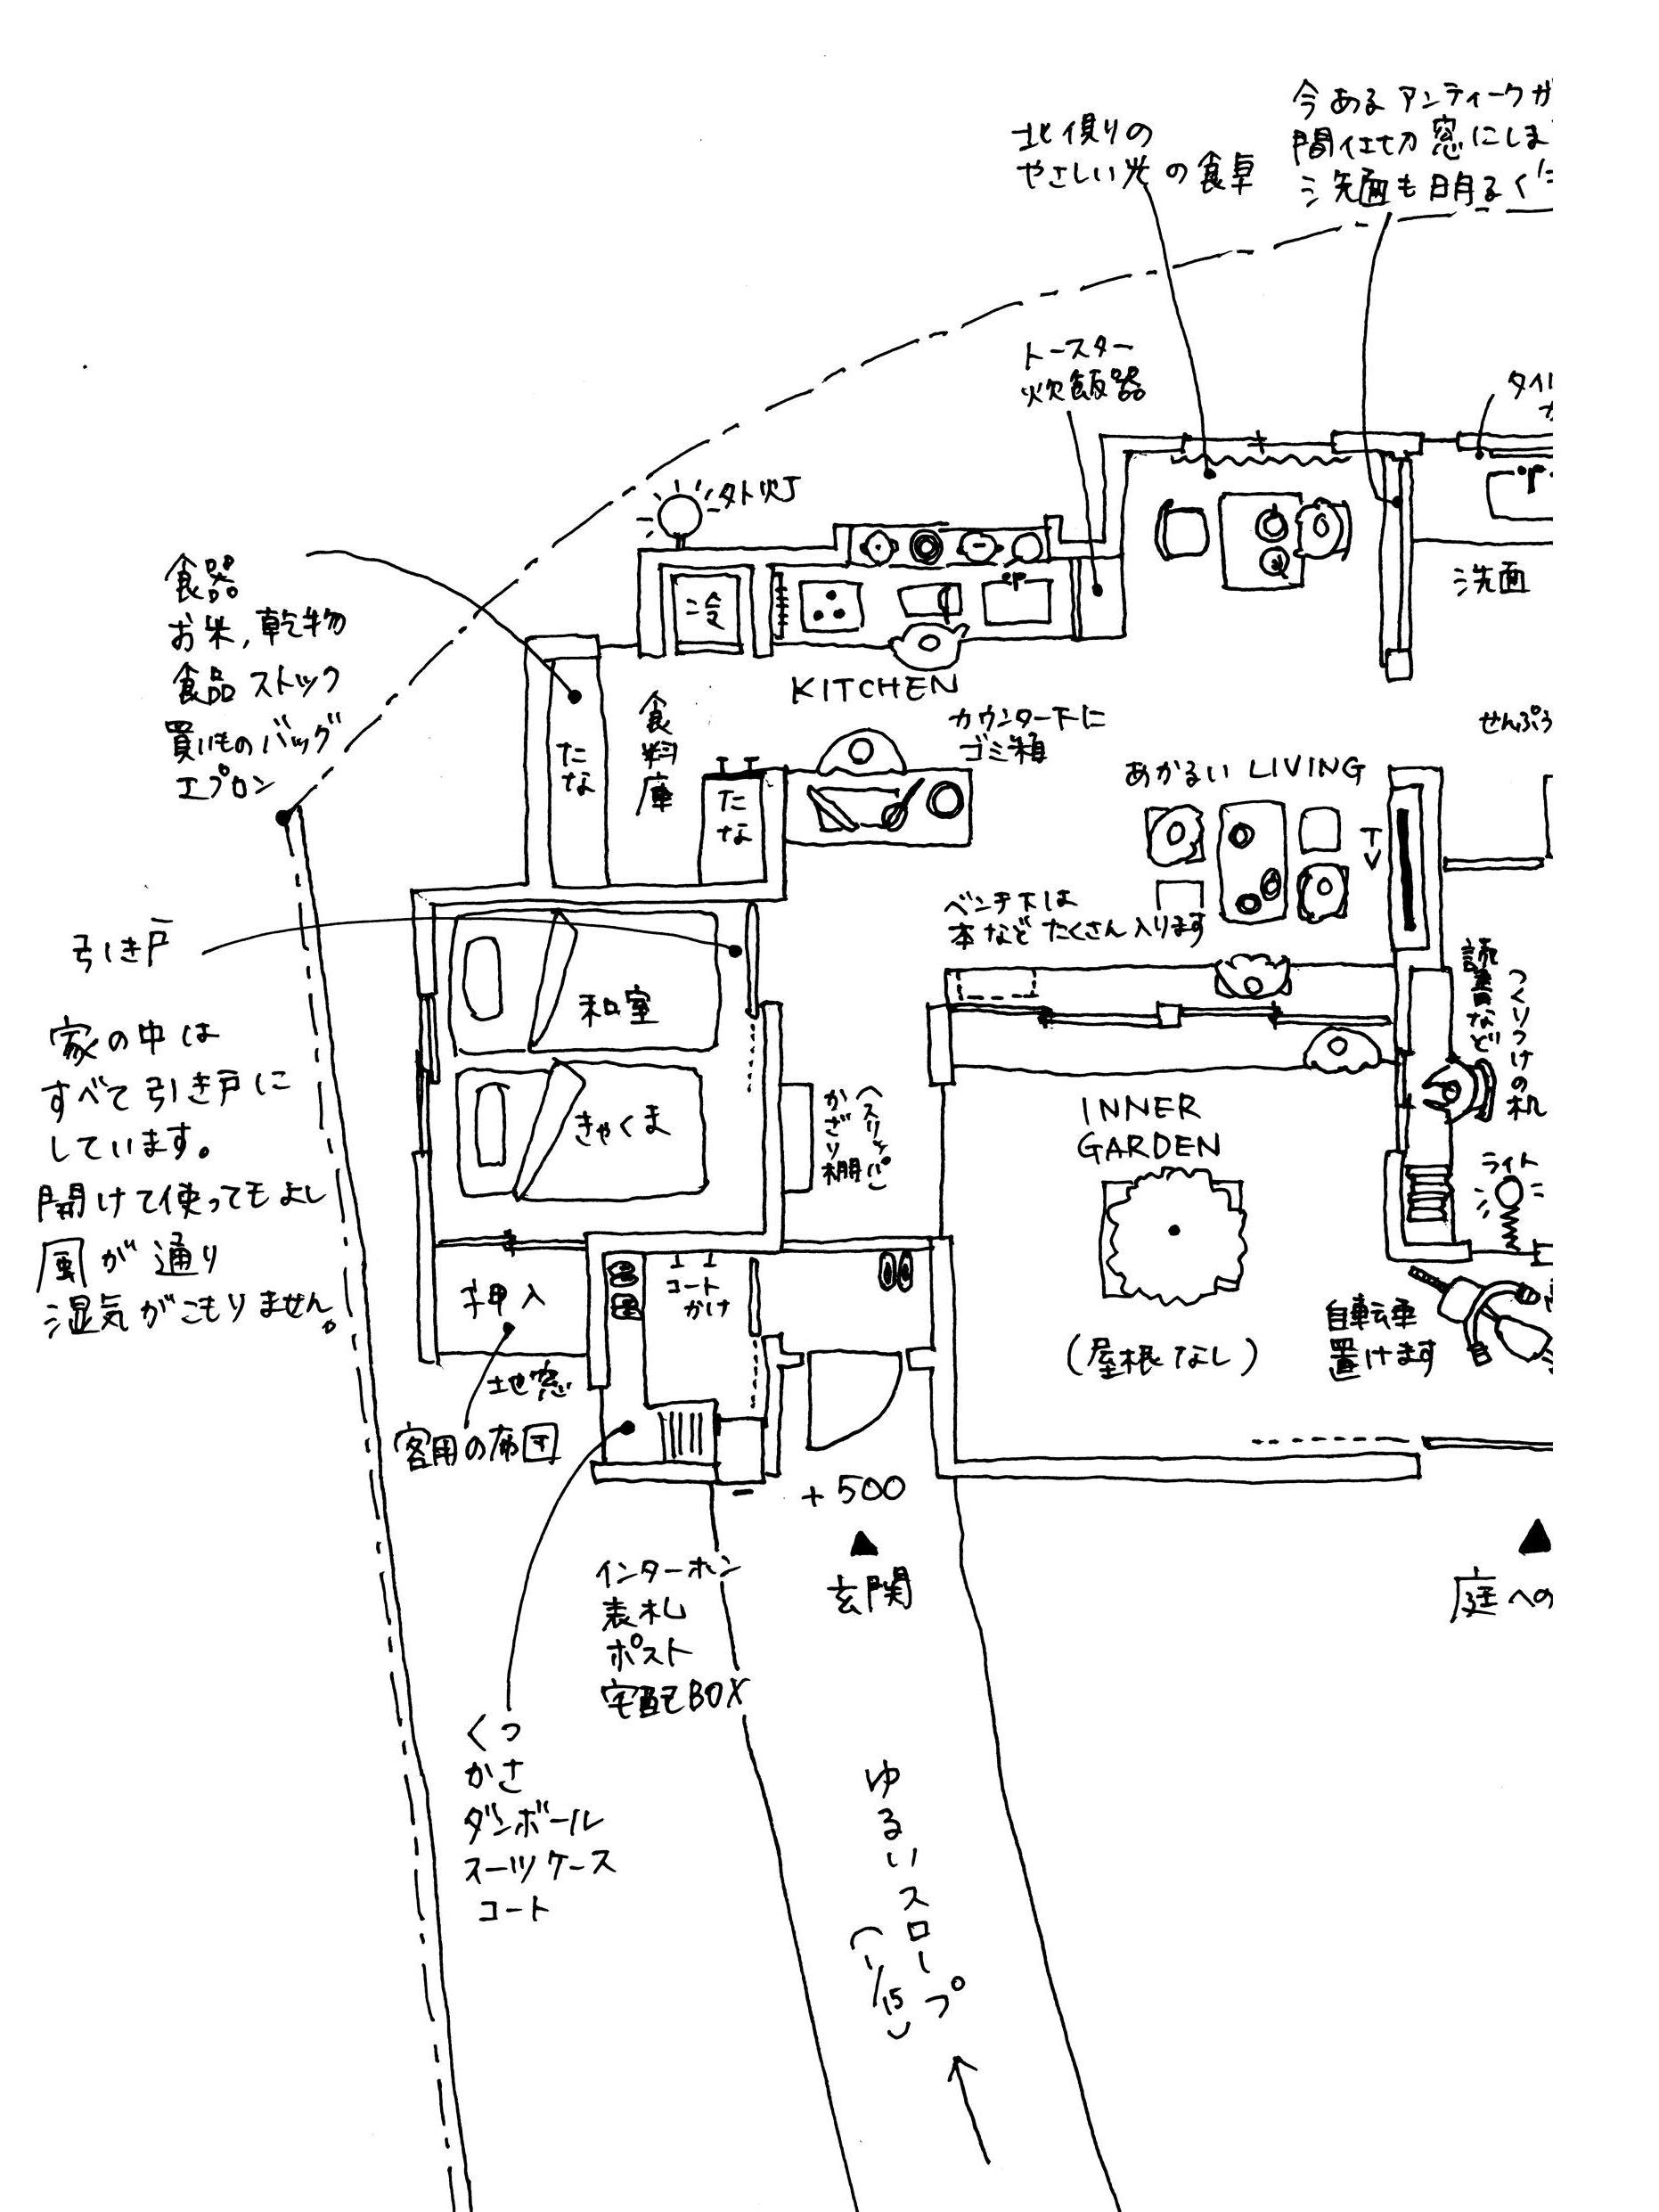 北側の
やさしい光の食卓
今あるアンティークガ
間仕切窓にしま
洗面も明るく
トースター
炊飯器
タイル
外灯
冷
洗面
食器
お米,乾物
食品ストック
買いものバッグ
エプロン
たな
食料庫
たな
KITCHEN
カウンター下に
ゴミ箱
あかるい LIVING
TV
せんぷう
ベンチ下は
本などたくさん入ります
引き戸
和室
きゃくま
家の中は
すべて引き戸に
しています。
開けて使ってもよし
風が通り
湿気がこもりません。
(スリッパ)
かざり棚
INNER
GARDEN
(屋根なし)
つくりつけの机
読書など
ライト
自転車
置けます
押入
コート
かけ
地窓
客用の布団
+500
玄関
庭への
インターホン
表札
ポスト
宅配BOX
くつ
かさ
ダンボール
スーツケース
コート
ゆるいスロープ
(1/15)